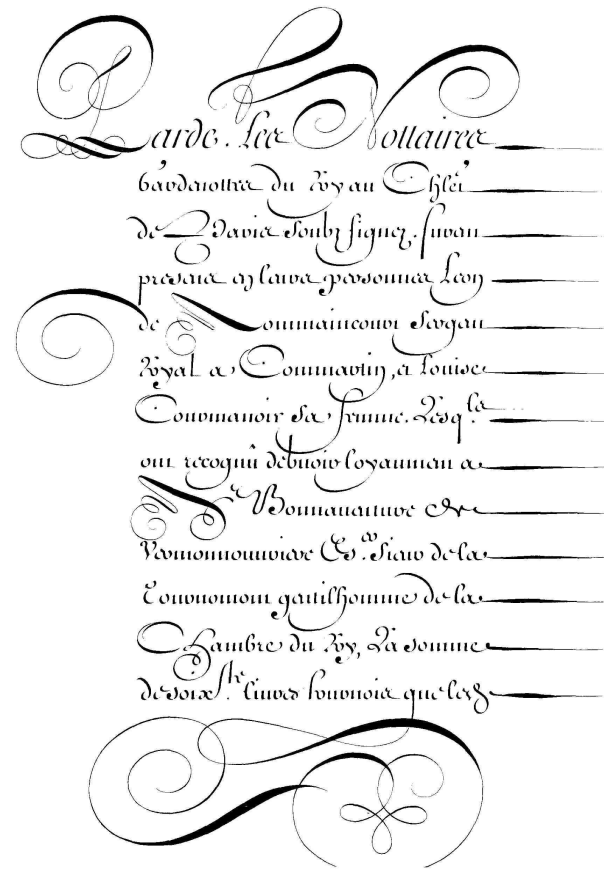 Parde. les Nottaires
Gardenottes du Roy au Chlet
de Paris soubz signez. furen
presens en leurs personnes Leon
de Mommaincourt sergent
Royal a Commartin, et Louise
Courmanoir sa femme. Lesq.les
ont recognû debvoir loyaument a
Me Bonnaventure de
Vermonmouviere Es.er Sieur de la
Tournomont gentilhomme de la
Chambre du Roy, La somme
de soix.te livres tournois que lesd